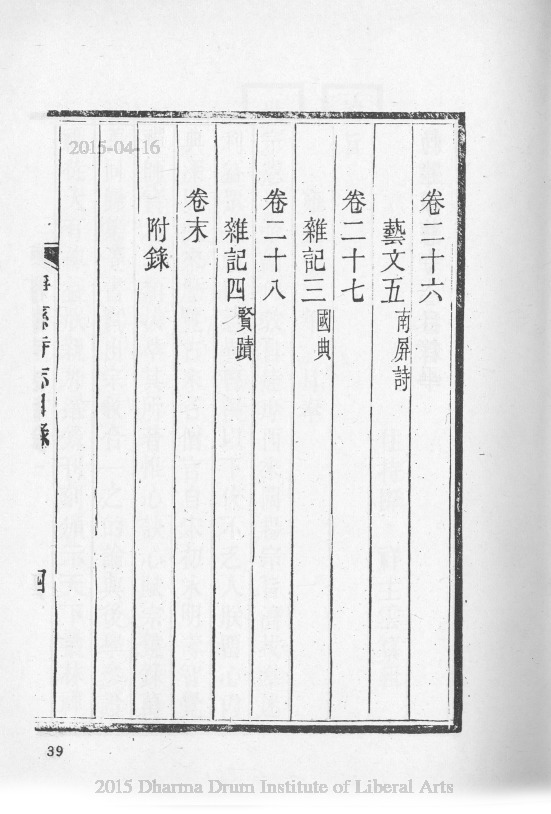 2015-04-16
卷二十六
藝文五 南屏詩
卷二十七
雜記三 國典
卷二十八
雜記四 賢蹟
卷末
附錄
四
39
2015 Dharma Drum Institute of Liberal Arts